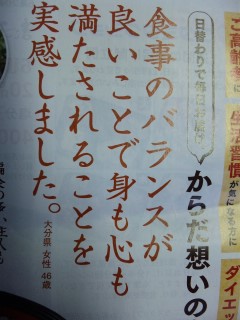 ご高齢者に
生活習慣
が気になる方に
ダイエッ
日替わりで毎日お届け
からだ想いの
食事のバランスが
良いことで身も心も
満たされることを
実感しました。
大分県 女性 46歳